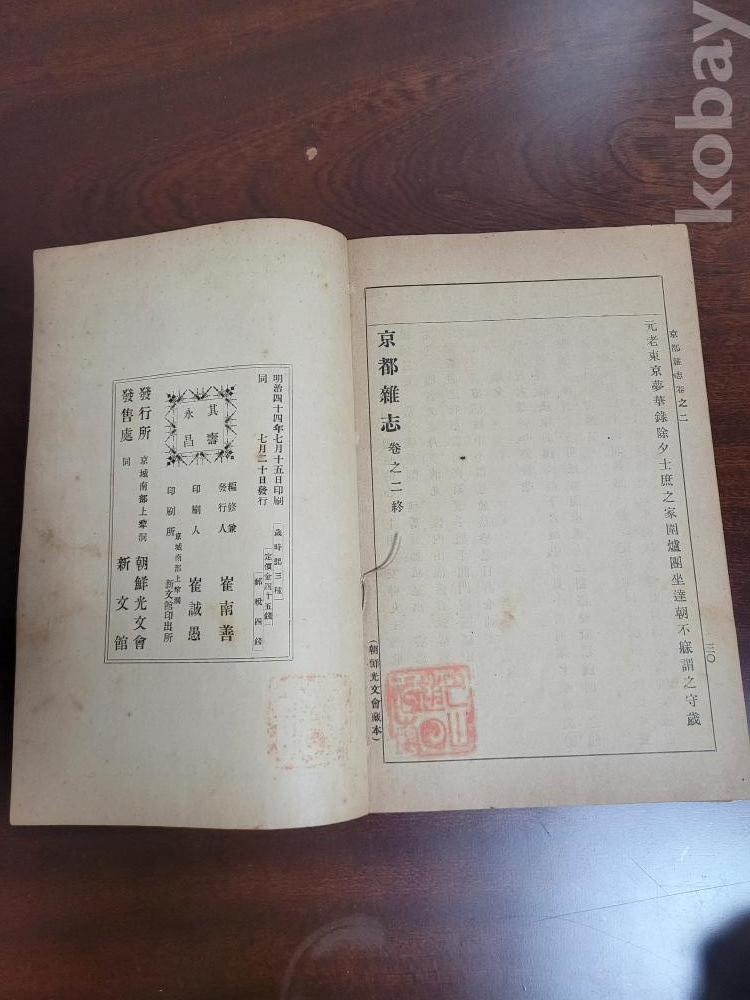 kobay
京都雜志卷之二
三〇
元老東京夢華錄除夕士庶之家圍爐團坐達朝不寐謂之守歲
京都雜志 卷之二 終
(朝鮮光文會藏本)
明治四十四年七月十五日印刷
同 七月二十日發行
歲時記三種
定價金四十五錢
郵稅四錢
其壽
永昌
編修兼
發行人 崔南善
印刷人 崔誠愚
京城南部上犂洞
印刷所 新文館印出所
發行所 京城南部上犂洞 朝鮮光文會
發售處 同 新文館